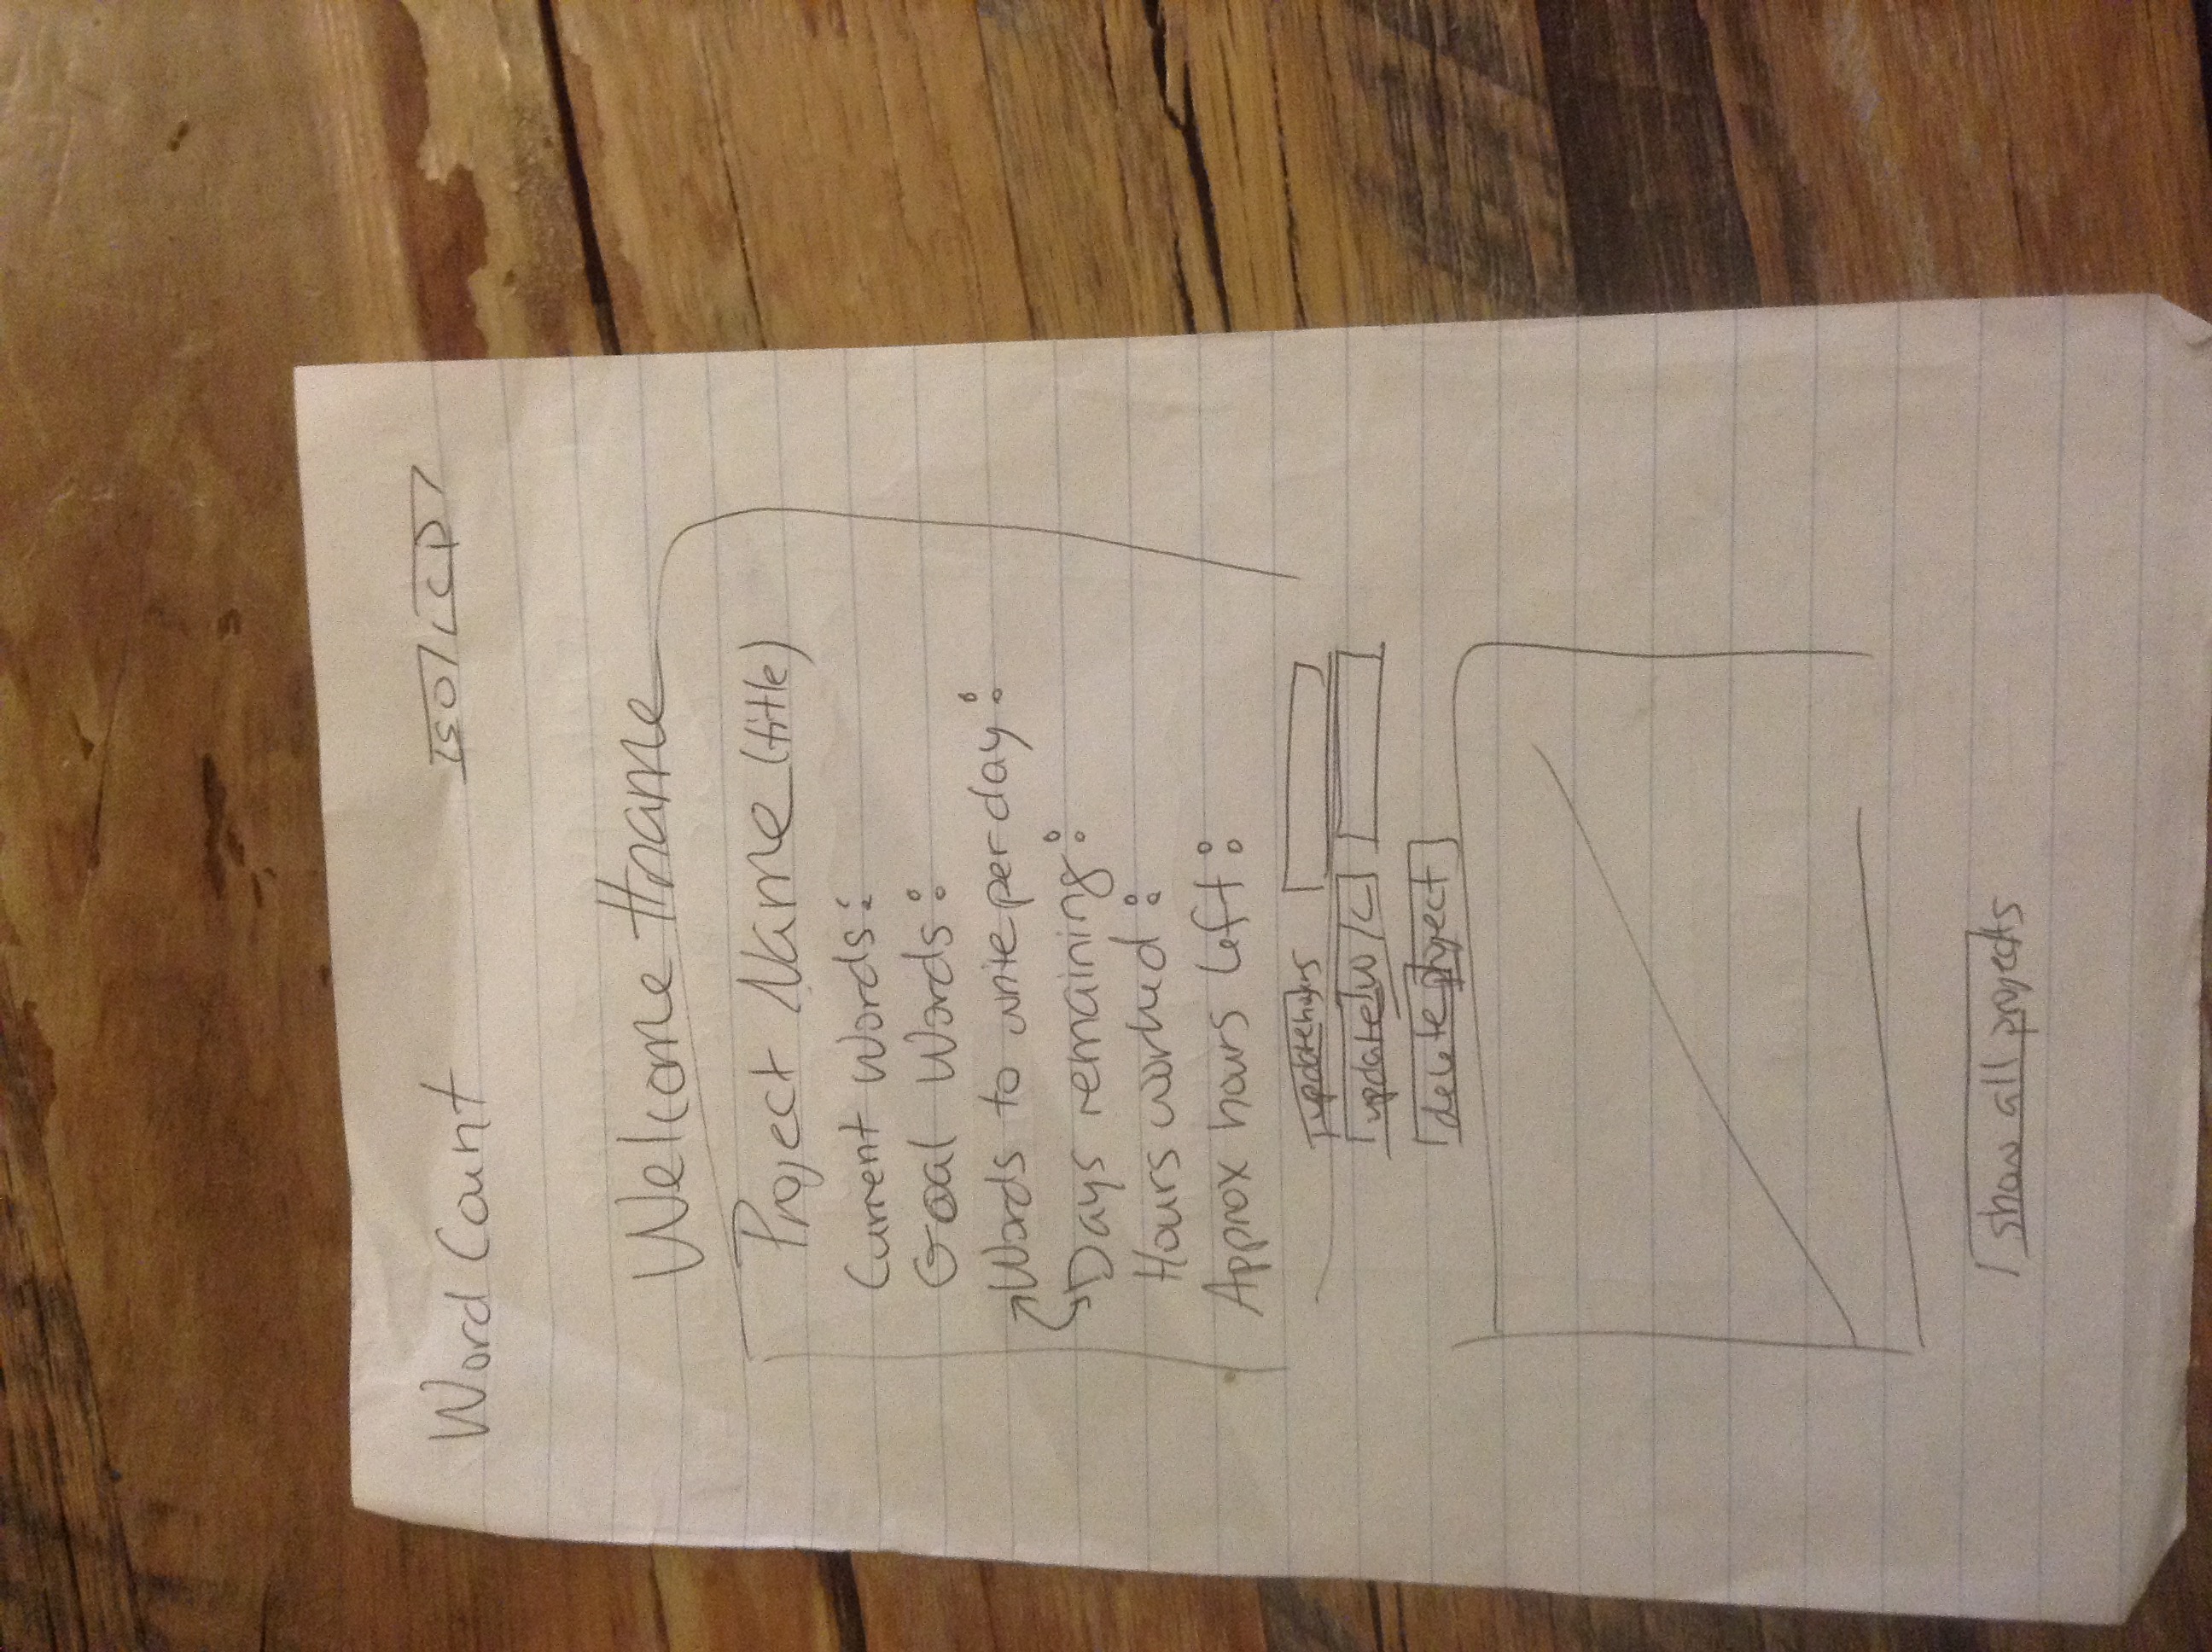 Word Count
ISO CP
Welcome #name
Project Name (title)
Current Words:
Goal Words:
Words to write per day:
Days remaining:
Hours worked:
Approx hours left:
update hours
update W/C
delete project
show all projects